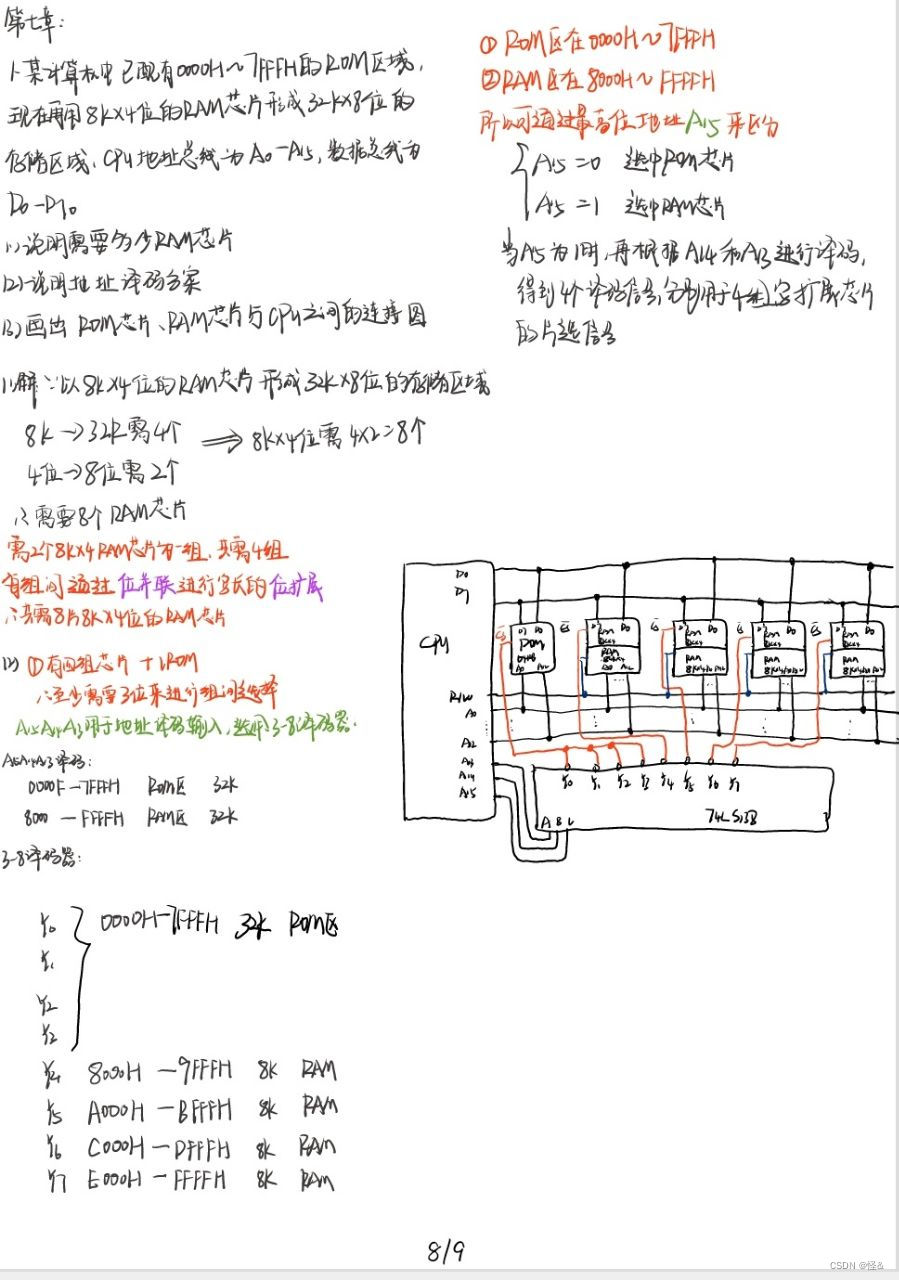 第七章:
1.某计算机中已配有0000H~7FFFH的ROM区域,
现在再用8K×4位的RAM芯片形成32K×8位的
存储区域、CPU地址总线为A0-A15,数据总线为
D0-D7。
(1)说明需要多少RAM芯片
(2)说明地址译码方案
(3)画出ROM芯片、RAM芯片与CPU之间的连接图
(1)解:∵以8K×4位的RAM芯片形成32K×8位的存储区域
8K→32K需4个
4位→8位需2个
⟹ 8K×4位需4×2=8个
∴需要8个RAM芯片
需2个8K×4RAM芯片为一组、共需4组
每组间通过位并联进行字长的位扩展
∴共需8片8K×4位的RAM芯片
(2) ①有四组芯片+1ROM
∴至少需要3位来进行组间选择
A15A14A13用于地址译码输入,选用3-8译码器.
A15A14A13译码:
0000F-7FFFH ROM区 32K
8000-FFFFH RAM区 32K
3-8译码器:
Y0
Y1
Y2
Y2
0000H-7FFFH 32K ROM区
Y4 8000H-9FFFH 8K RAM
Y5 A000H-BFFFH 8K RAM
Y6 C000H-DFFFH 8K RAM
Y7 E000H-FFFFH 8K RAM
①ROM区在0000H~7FFFH
②RAM区在8000H~FFFFH
所以可通过最高位地址A15来区分
A15=0 选中ROM芯片
A15=1 选中RAM芯片
当A15为1时,再根据A14和A13进行译码,
得到4个译码信号,分别用于4组字扩展芯片
的片选信号
CPU
D0
D7
R/W
A0
A12
A14
A15
D7 D0
ROM
D0
RAM
8K×4
RAM
D0
RAM
RAM
D0
RAM
RAM
D0
RAM
RAM
Y0 Y1 Y2 Y3 Y4 Y5 Y6 Y7
A B C
74LS138
8/9
CSDN @怪&